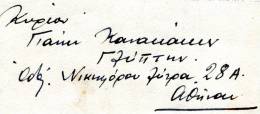 Κύριον
Γιάννη Κανακάκην
Γλύπτην
Οδός Νικηφόρου Λύτρα 28 Α.
Αθήναι